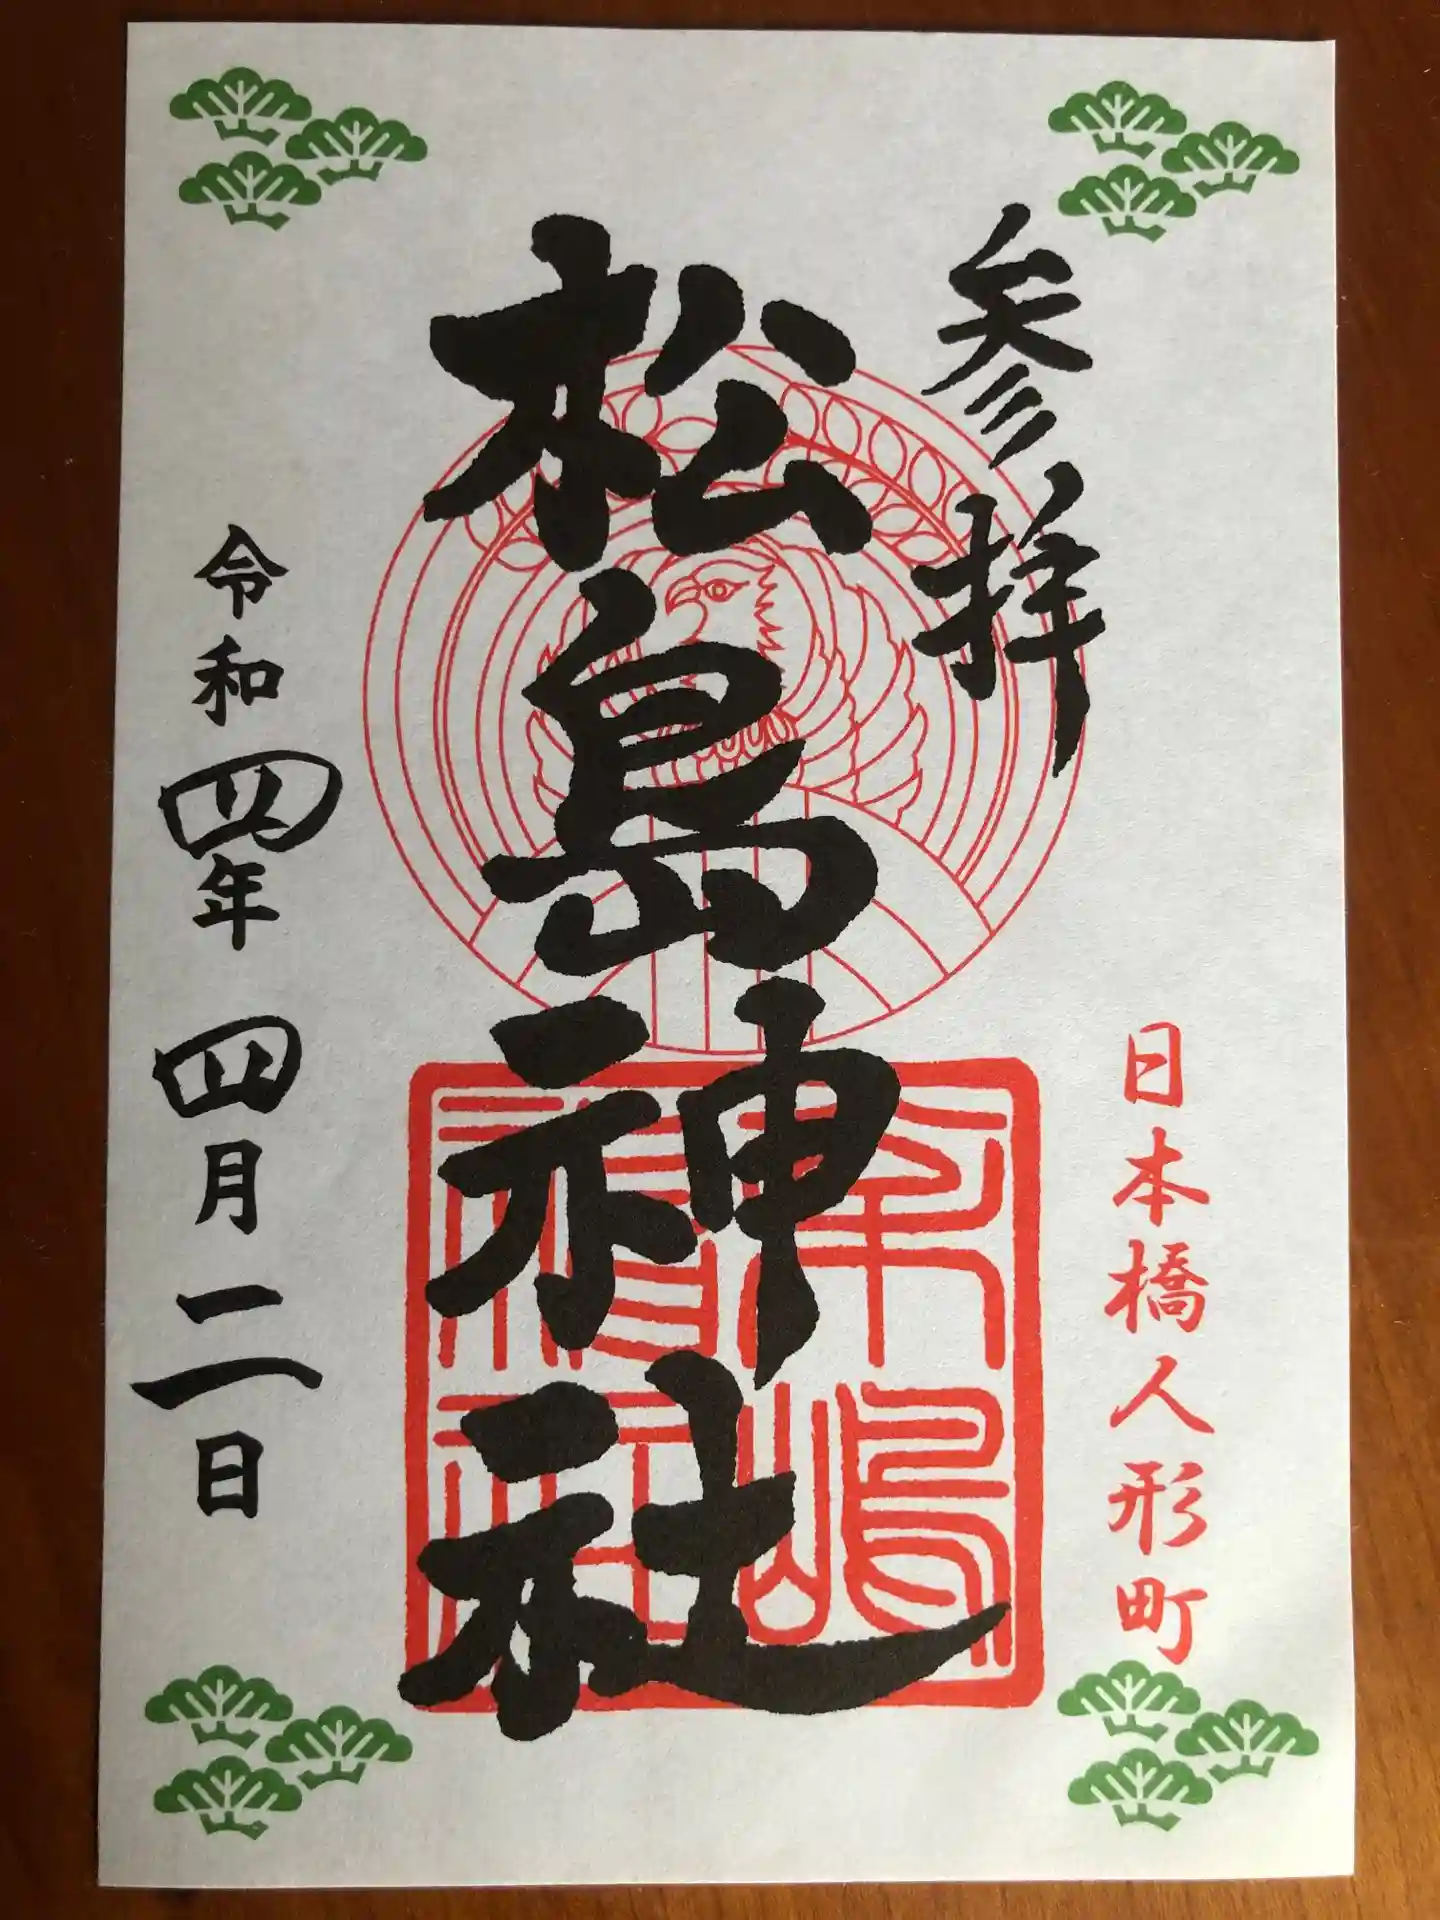 参拝
日本橋人形町
松島神社
令和四年 四月二日